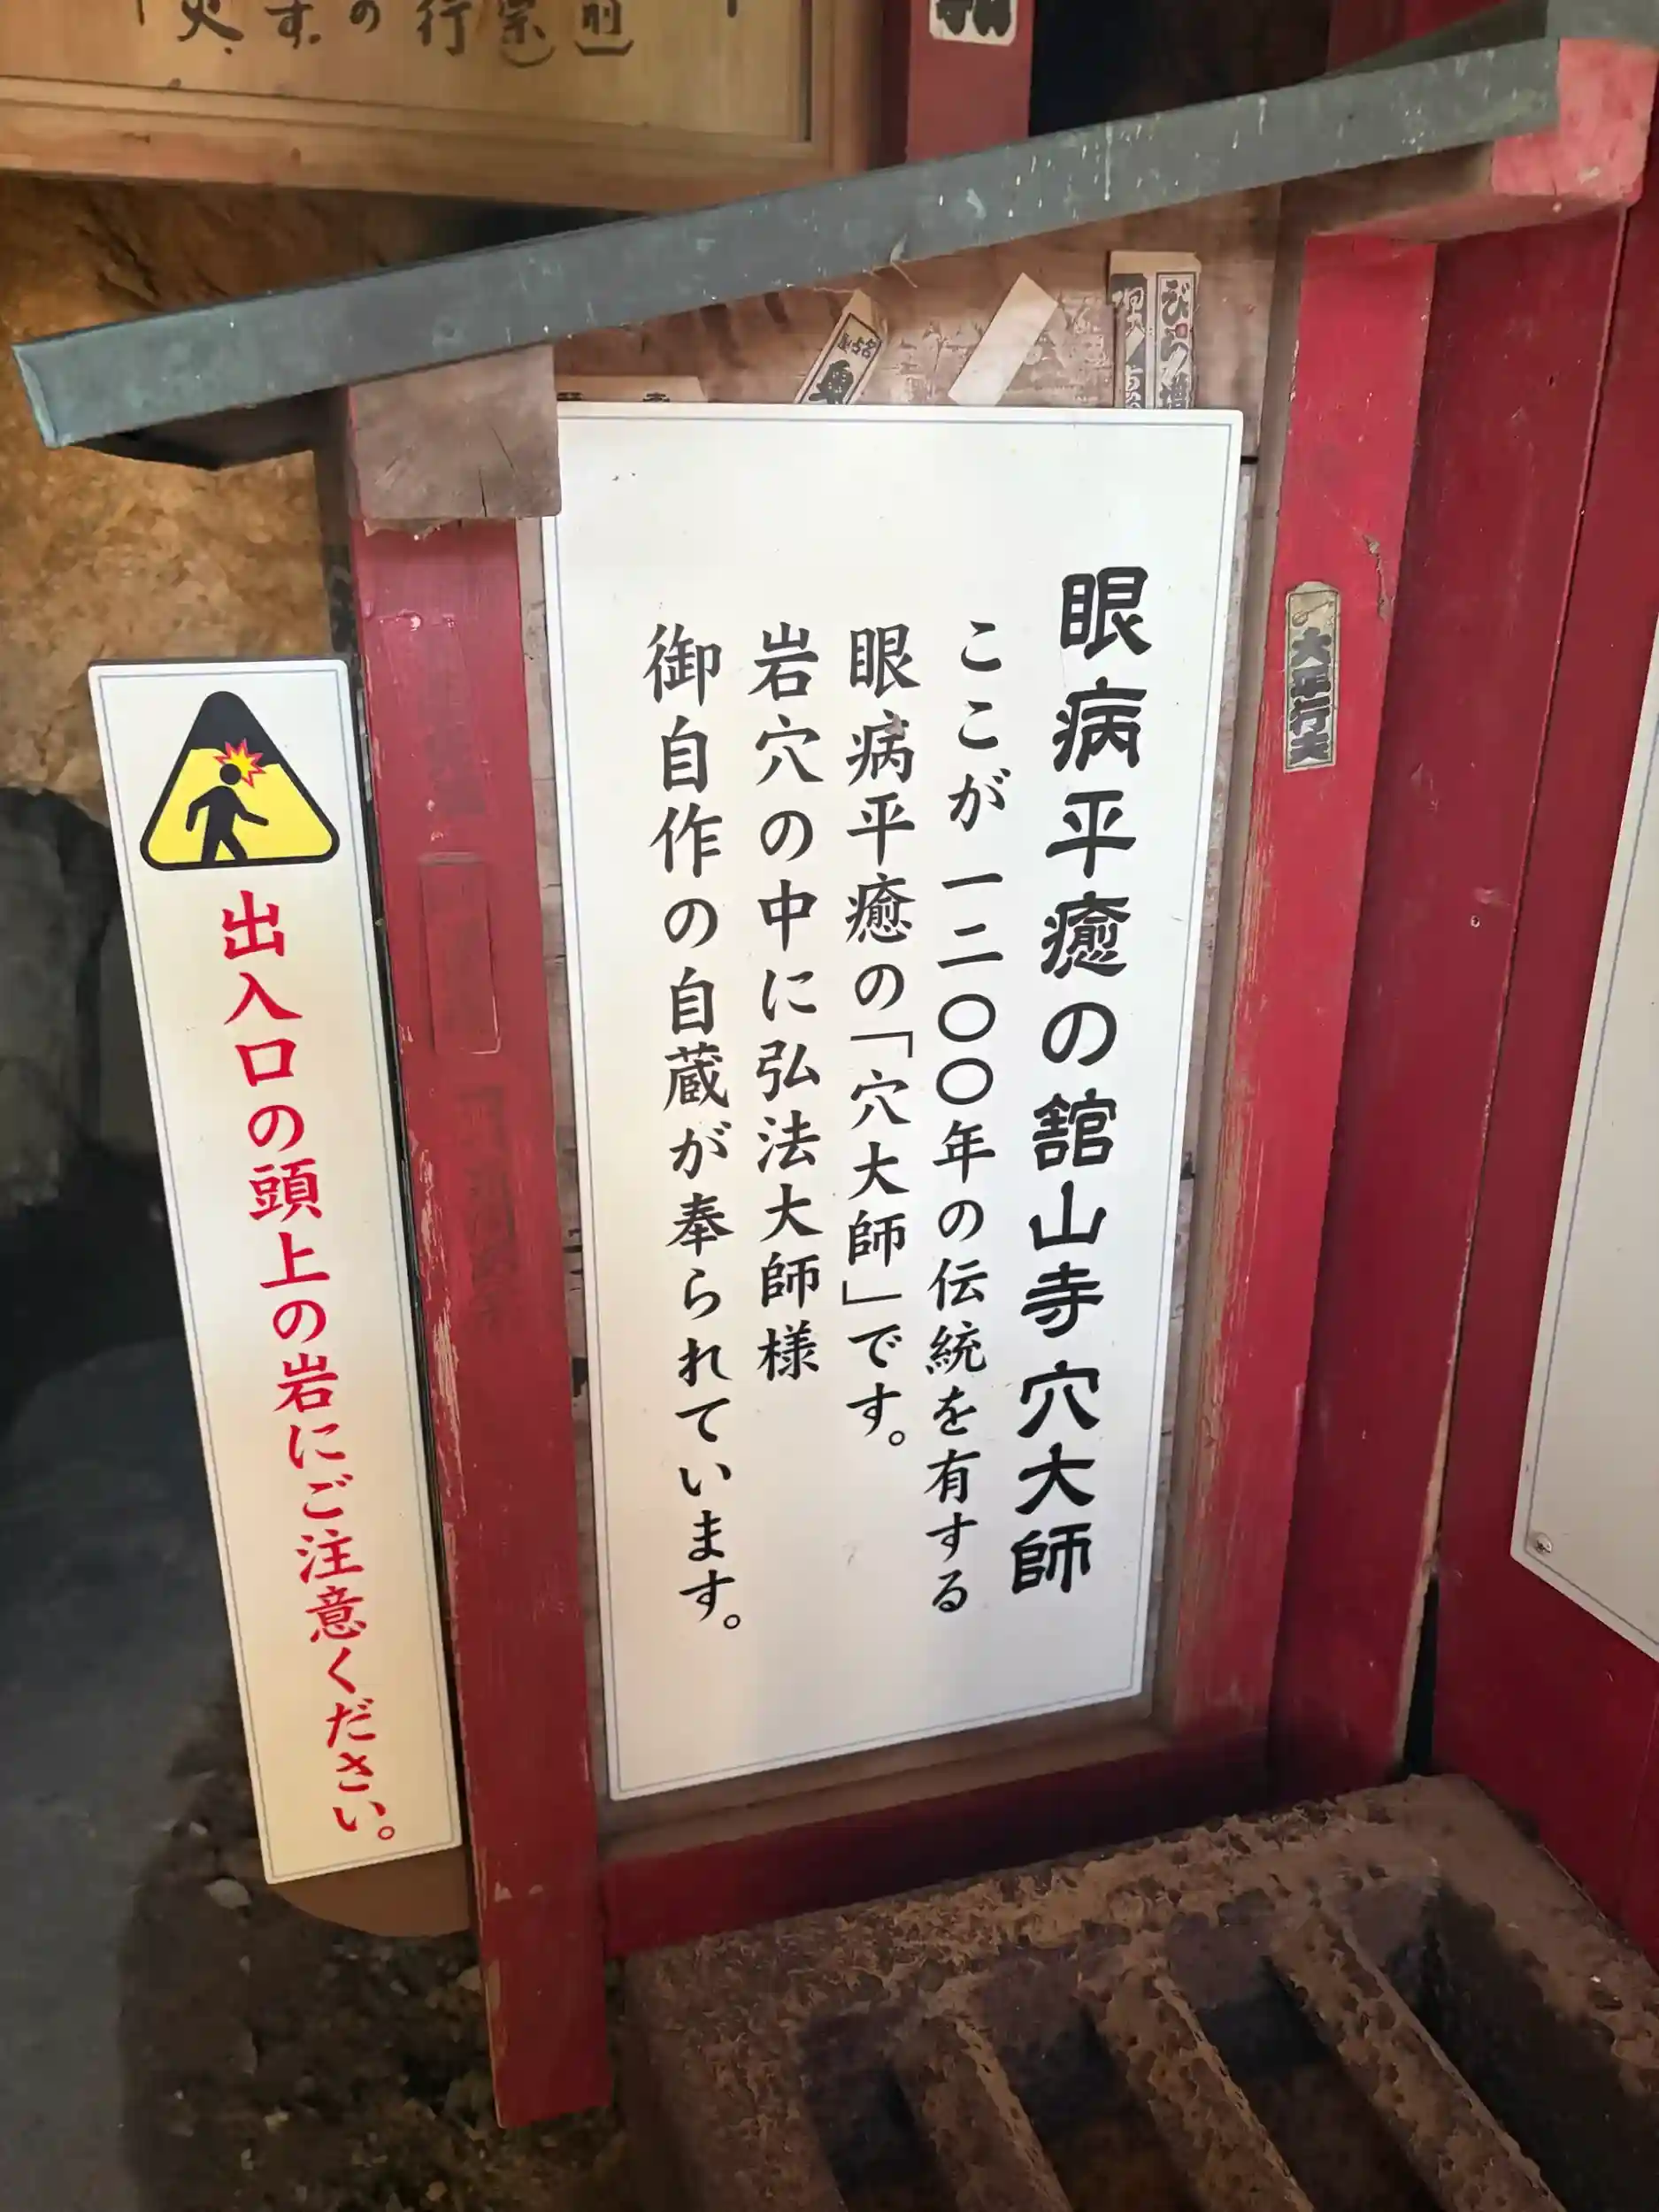 眼病平癒の舘山寺穴大師
ここが一二〇〇年の伝統を有する
眼病平癒の「穴大師」です。
岩穴の中に弘法大師様
御自作の自蔵が奉られています。
出入口の頭上の岩にご注意ください。
大平行夫